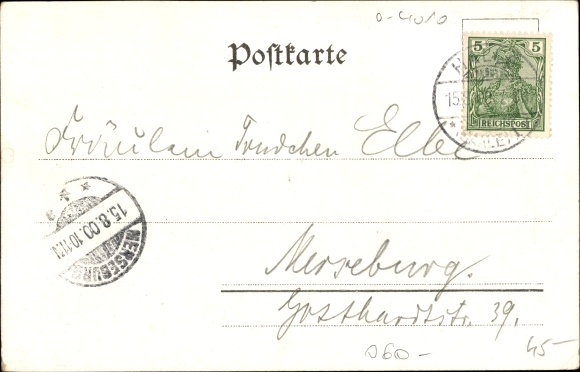 0-4010
Postkarte
5 5
REICHSPOST
Fräulein Trudchen Elbe
15.8.00.10-11V
MERSEBURG
Merseburg.
Gotthardtstr. 39.
060-
45-